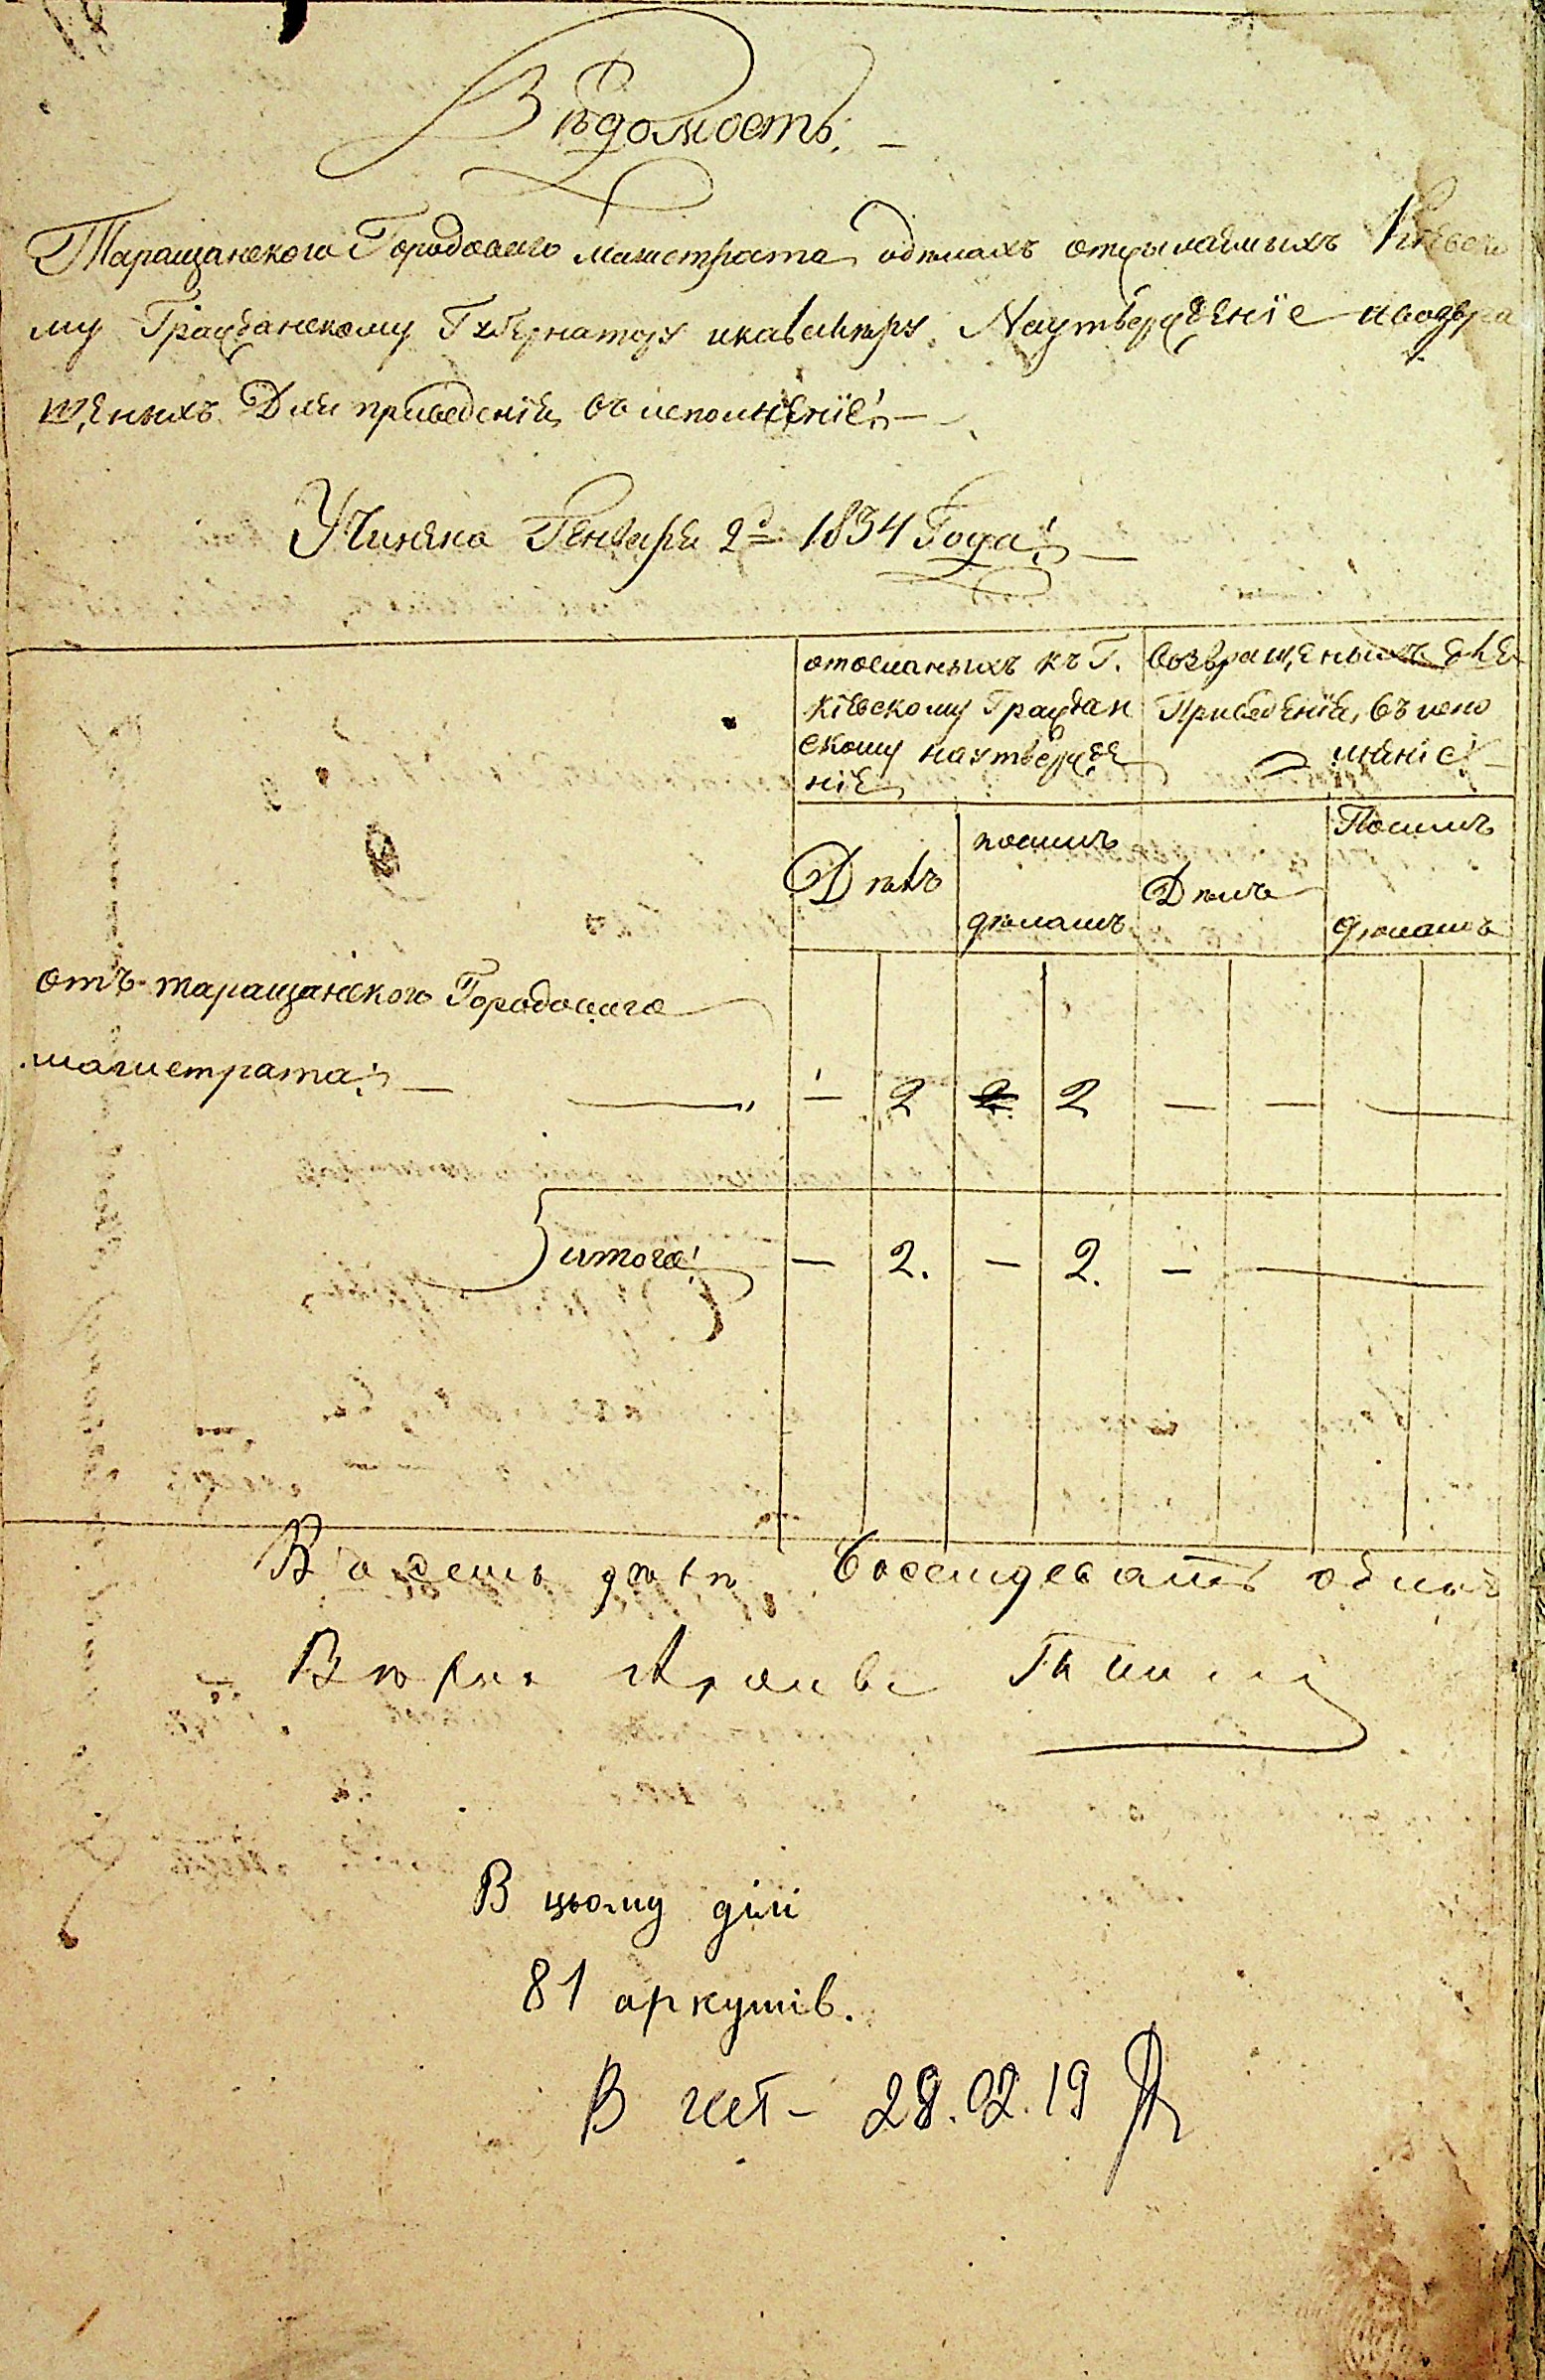 Вѣдомость
Таращанского Городоваго магистрата одѣлахъ отсылаемыхъ Киевско
му Гражданскому Губернатору икавалеру Наутвержденіе ивозвра
щеныхъ Для приведенія въ исполненіе
Учинена Генваря 2д 1834 Года
отосланыхъ къ Г. Кіевскому Граждан скому наутвержде ніе
возвращеныхъ для Приведенія въ испо лненіе
Дѣлъ
посимъ дѣламъ
Дѣлъ
Посимъ дѣламъ
отъ таращанского Городоваго
магистрата — 2 2 2 — — —
итого — 2. — 2. — —
В семь дѣлѣ восемдесатъ одинъ
Вѣрно
В цьому ділі
81 аркушів.
28.02.19